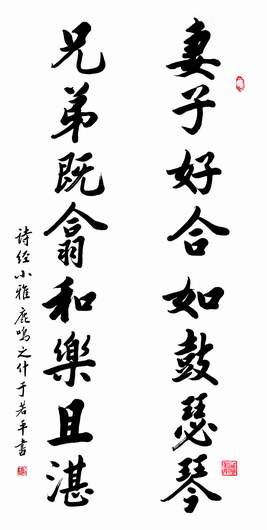 妻子好合如鼓瑟琴
兄弟既翕和樂且湛
诗经小雅鹿鸣之什于若平书